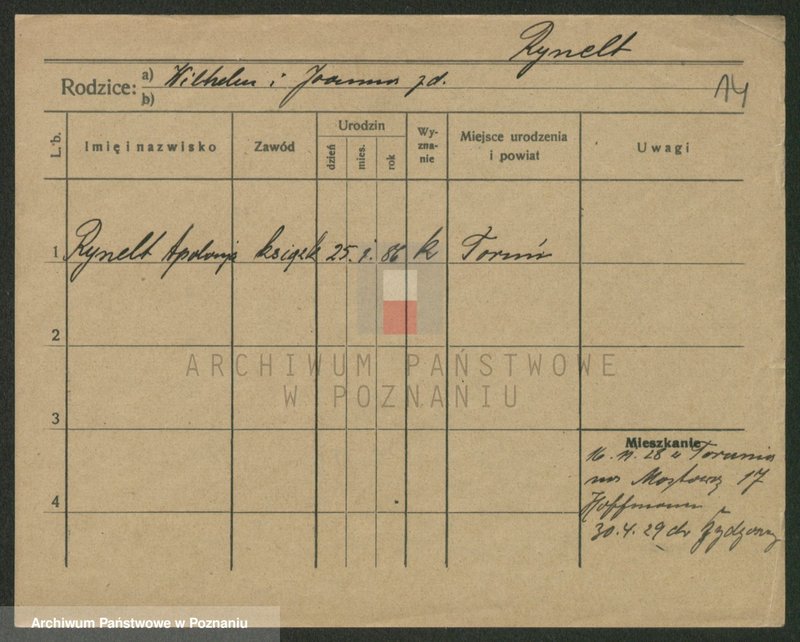 Rynelt
Rodzice: a) Wilhelm i Joanna zd.
b)
14
L. b.
Imię i nazwisko
Zawód
Urodzin
dzień
mies.
rok
Wy-
zna-
nie
Miejsce urodzenia
i powiat
Uwagi
1 Rynelt Apolonja książk 25. 1. 86 k Toruń
2
ARCHIWUM PAŃSTWOWE
W POZNANIU
3
Mieszkanie
16. 11. 28 z Torunia
na Mostową 17
Hoffmann
4
30. 4. 29 do
Archiwum Państwowe w Poznaniu